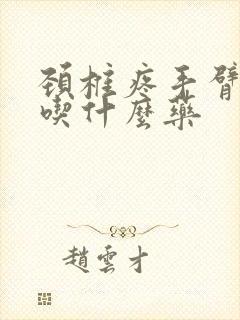 頚椎疼手臂
喫什麼藥
趙雲才